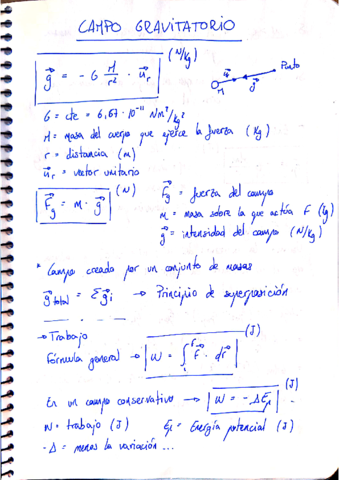 CAMPO GRAVITATORIO
g⃗ = - G M/r² · u⃗r (N/kg)
Punto
u⃗r
g⃗
M
G = cte = 6,67 · 10⁻¹¹ Nm²/kg²
M = masa del cuerpo que ejerce la fuerza (kg)
r = distancia (m)
u⃗r = vector unitario
F⃗g = m · g⃗ (N)
F⃗g = fuerza del campo
m = masa sobre la que actúa F (kg)
g⃗ = intensidad del campo (N/kg)
* Campo creado por un conjunto de masas
g⃗total = Σg⃗i → Principio de superposición
→ Trabajo
Fórmula general → W = ∫ᵢᶠ F⃗ · dr⃗ (J)
En un campo conservativo → W = - ΔEp (J)
W = trabajo (J) Ep = Energía potencial (J)
- Δ = menos la variación ...